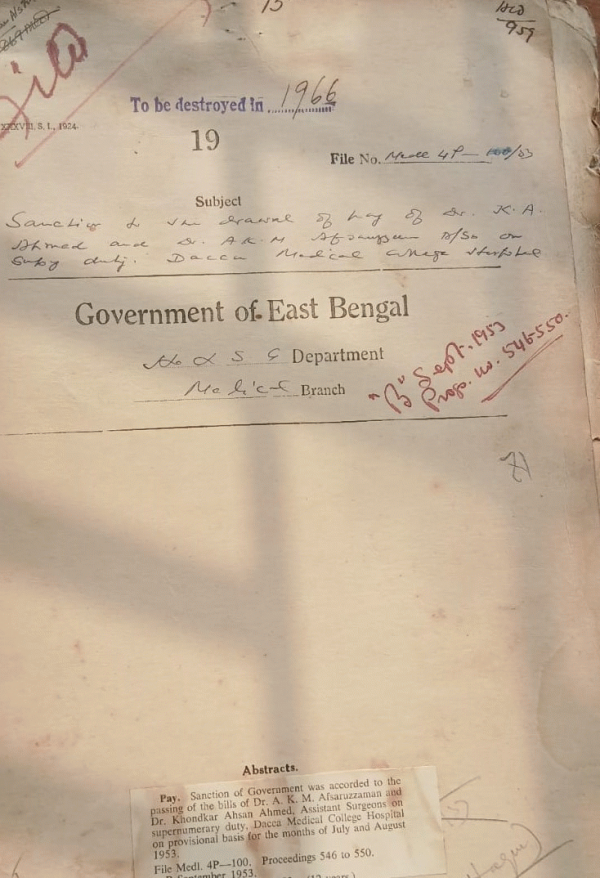 15
959
To be destroyed in 1966
XXXVIII, S. I., 1924.
19
File No. Medl 4P— /53
Subject
Sanction to the drawal of pay of Dr. K. A.
Ahmed and Dr. A. K. M Afsaruzzaman on
duty. Dacca Medical College Hospital
Government of East Bengal
Department
Medical Branch
"B" Sept. 1953
Prop. no. 546-550.
Abstracts.
Pay. Sanction of Government was accorded to the
passing of the bills of Dr. A. K. M. Afsaruzzaman and
Dr. Khondkar Ahsan Ahmed, Assistant Surgeons on
supernumerary duty, Dacca Medical College Hospital
on provisional basis for the months of July and August
1953.
File Medl. 4P—100. Proceedings 546 to 550.
September 1953.